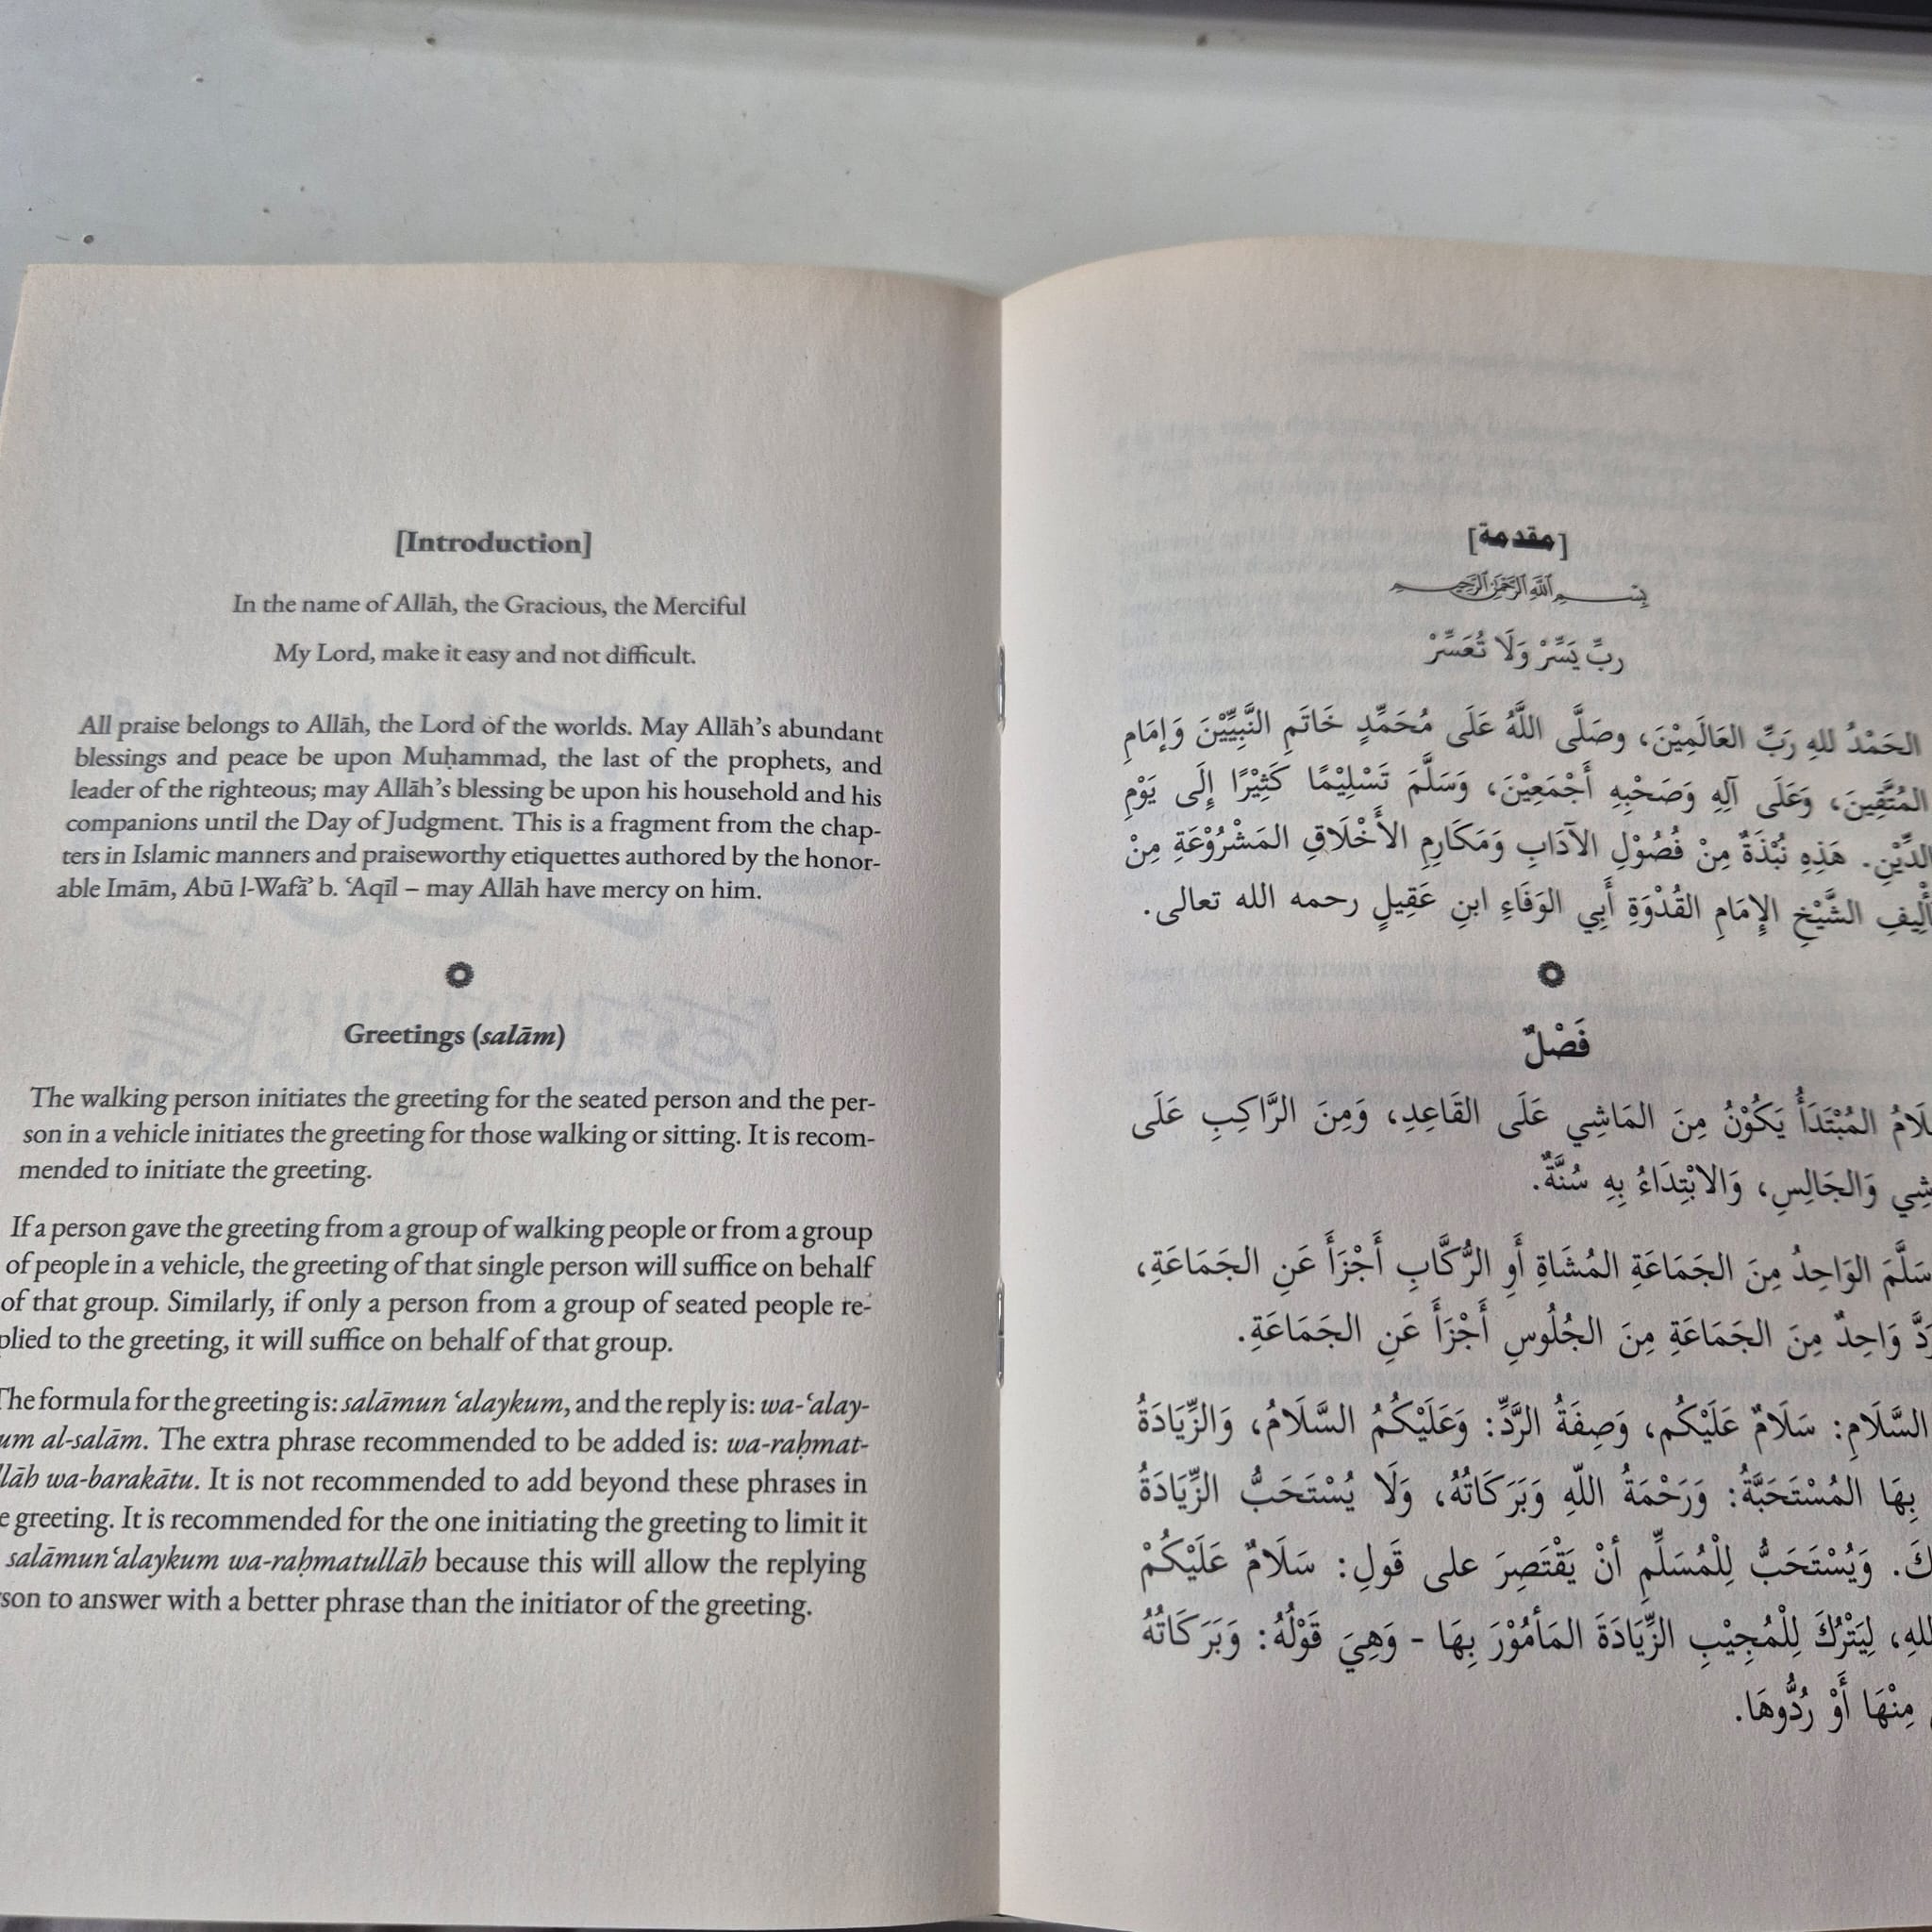 [Introduction]
In the name of Allāh, the Gracious, the Merciful
My Lord, make it easy and not difficult.
All praise belongs to Allāh, the Lord of the worlds. May Allāh’s abundant
blessings and peace be upon Muḥammad, the last of the prophets, and
leader of the righteous; may Allāh’s blessing be upon his household and his
companions until the Day of Judgment. This is a fragment from the chap-
ters in Islamic manners and praiseworthy etiquettes authored by the honor-
able Imām, Abū l-Wafāʾ b. ʿAqīl – may Allāh have mercy on him.
Greetings (salām)
The walking person initiates the greeting for the seated person and the per-
son in a vehicle initiates the greeting for those walking or sitting. It is recom-
mended to initiate the greeting.
If a person gave the greeting from a group of walking people or from a group
of people in a vehicle, the greeting of that single person will suffice on behalf
of that group. Similarly, if only a person from a group of seated people re-
plied to the greeting, it will suffice on behalf of that group.
The formula for the greeting is: salāmun ʿalaykum, and the reply is: wa-ʿalay-
um al-salām. The extra phrase recommended to be added is: wa-raḥmat-
llāh wa-barakātu. It is not recommended to add beyond these phrases in
e greeting. It is recommended for the one initiating the greeting to limit it
salāmun ʿalaykum wa-raḥmatullāh because this will allow the replying
son to answer with a better phrase than the initiator of the greeting.
[مقدمة]
بِسْمِ اللَّهِ الرَّحْمَنِ الرَّحِيمِ
ربِّ يَسِّرْ وَلَا تُعَسِّرْ
الحَمْدُ للهِ رَبِّ العَالَمِيْنَ، وصَلَّى اللَّهُ عَلَى مُحَمَّدٍ خَاتَمِ النَّبِيِّيْنَ وَإمَامِ
المُتَّقِينَ، وَعَلَى آلِهِ وَصَحْبِهِ أَجْمَعِيْنَ، وَسَلَّمَ تَسْلِيْمًا كَثِيْرًا إِلَى يَوْمِ
الدِّيْنِ. هَذِهِ نُبْذَةٌ مِنْ فُصُوْلِ الآدَابِ وَمَكَارِمِ الأَخْلَاقِ المَشْرُوْعَةِ مِنْ
أْلِيفِ الشَّيْخِ الإِمَامِ القُدْوَةِ أَبِي الوَفَاءِ ابنِ عَقِيلٍ رحمه الله تعالى.
فَصْلٌ
لَامُ المُبْتَدَأُ يَكُوْنُ مِنَ المَاشِي عَلَى القَاعِدِ، وَمِنَ الرَّاكِبِ عَلَى
شِي وَالجَالِسِ، وَالابْتِدَاءُ بِهِ سُنَّةٌ.
سَلَّمَ الوَاحِدُ مِنَ الجَمَاعَةِ المُشَاةِ أَوِ الرُّكَّابِ أَجْزَأَ عَنِ الجَمَاعَةِ،
رَدَّ وَاحِدٌ مِنَ الجَمَاعَةِ مِنَ الجُلُوسِ أَجْزَأَ عَنِ الجَمَاعَةِ.
السَّلَامِ: سَلَامٌ عَلَيْكُم، وَصِفَةُ الرَّدِّ: وَعَلَيْكُمُ السَّلَامُ، وَالزِّيَادَةُ
بِهَا المُسْتَحَبَّةُ: وَرَحْمَةُ اللّهِ وَبَرَكَاتُهُ، وَلَا يُسْتَحَبُّ الزِّيَادَةُ
كَ. وَيُسْتَحَبُّ لِلْمُسَلِّمِ أنْ يَقْتَصِرَ على قَولِ: سَلَامٌ عَلَيْكُمْ
للهِ، لِيَتْرُكَ لِلْمُجِيْبِ الزِّيَادَةَ المَأمُوْرَ بِهَا - وَهِيَ قَوْلُهُ: وَبَرَكَاتُهُ
مِنْهَا أَوْ رُدُّوهَا.